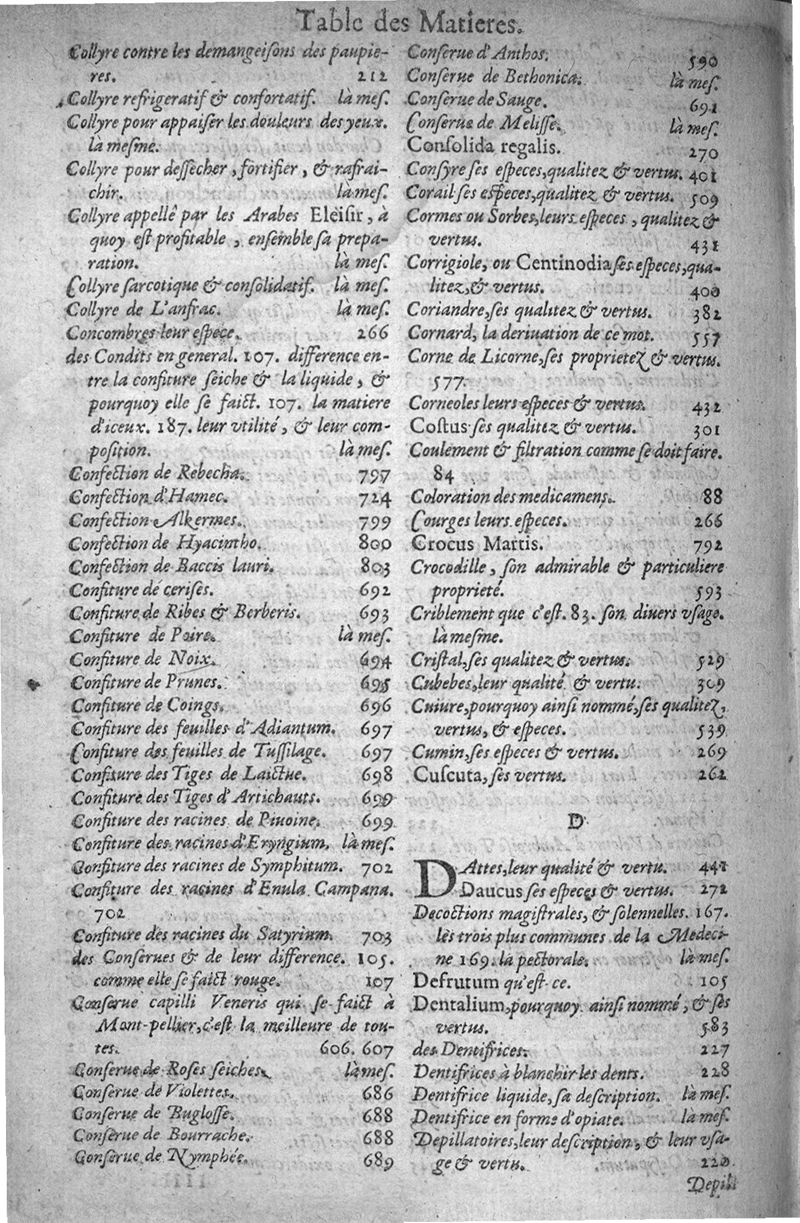 Table des Matieres.
Collyre contre les demangeiſons des paupie-
res. 212
Collyre refrigeratif & confortatif. là meſ.
Collyre pour appaiſer les douleurs des yeux.
la meſme.
Collyre pour deſſecher, fortifier, & rafrai-
chir. là meſ.
Collyre appellé par les Arabes Eleiſir, à
quoy eſt profitable, enſemble ſa prepa-
ration. là meſ.
Collyre ſarcotique & conſolidatif. là meſ.
Collyre de L'anfrac. là meſ.
Concombres leur eſpece. 266
des Condits en general. 107. difference en-
tre la confiture ſeiche & la liquide, &
pourquoy elle ſe faict. 107. la matiere
d'iceux. 187. leur vtilité, & leur com-
poſition. là meſ.
Confection de Rebecha. 797
Confection d'Hamec. 724
Confection Alkermes. 799
Confection de Hyacintho. 800
Confection de Baccis lauri. 803
Confiture de ceriſes. 692
Confiture de Ribes & Berberis. 693
Confiture de Poire. là meſ.
Confiture de Noix. 694
Confiture de Prunes. 695
Confiture de Coings. 696
Confiture des feuilles d'Adiantum. 697
Confiture des feuilles de Tuſſilage. 697
Confiture des Tiges de Laictue. 698
Confiture des Tiges d'Artichauts. 699
Confiture des racines de Piuoine. 699
Confiture des racines d'Eryngium. là meſ.
Confiture des racines de Symphitum. 702
Confiture des racines d'Enula Campana.
702
Confiture des racines du Satyrium. 703
des Conſerues & de leur difference. 105.
comme elle ſe faict rouge. 107
Conſerue capilli Veneris qui ſe faict à
Mont-pellier, c'eſt la meilleure de tou-
tes. 606. 607
Conſerue de Roſes ſeiches. là meſ.
Conſerue de Violettes. 686
Conſerue de Bugloſſe. 688
Conſerue de Bourrache. 688
Conſerue de Nymphée. 689
Conſerue d'Anthos. 590
Conſerue de Bethonica. là meſ.
Conſerue de Sauge. 691
Conſerue de Meliſſe. là meſ.
Conſolida regalis. 270
Conſyre ſes eſpeces, qualitez & vertus. 401
Corail ſes eſpeces, qualitez & vertus. 509
Cormes ou Sorbes, leurs eſpeces, qualitez &
vertus. 431
Corrigiole, ou Centinodia ſes eſpeces, qua-
litez, & vertus. 400
Coriandre, ſes qualitez & vertus. 382
Cornard, la deriuation de ce mot. 557
Corne de Licorne, ſes proprietez & vertus.
577.
Corneoles leurs eſpeces & vertus. 432
Coſtus ſes qualitez & vertus. 301
Coulement & filtration comme ſe doit faire.
84
Coloration des medicamens. 88
Courges leurs eſpeces. 266
Crocus Martis. 792
Crocodille, ſon admirable & particuliere
proprieté. 593
Criblement que c'eſt. 83. ſon diuers vſage.
là meſme.
Criſtal, ſes qualitez & vertus. 529
Cubebes, leur qualité & vertu. 309
Cuiure, pourquoy ainſi nommé, ſes qualitez,
vertus, & eſpeces. 539
Cumin, ſes eſpeces & vertus. 269
Cuſcuta, ſes vertus. 262
D
DAttes, leur qualité & vertu. 441
Daucus ſes eſpeces & vertus. 272
Decoctions magiſtrales, & ſolennelles. 167.
les trois plus communes de la Medeci-
ne 169. la pectorale. là meſ.
Defrutum qu'eſt-ce. 105
Dentalium, pourquoy ainſi nommé, & ſes
vertus. 583
des Dentifrices. 227
Dentifrices à blanchir les dents. 228
Dentifrice liquide, ſa deſcription. là meſ.
Dentifrice en forme d'opiate. la meſ.
Depillatoires, leur deſcription, & leur vſa-
ge & vertu. 220
Depil